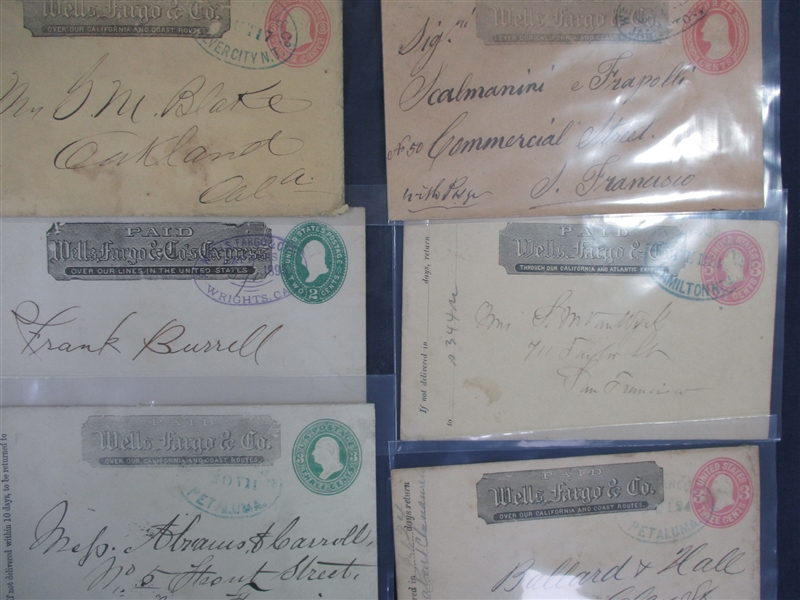 Wells, Fargo & Co.
OVER OUR CALIFORNIA AND COAST ROUTES
VER CITY N.T.
G. M. Blake
Oakland
Cala.
Wells, Fargo & Co.
Sigri
Scalmanini e Frapolli
No 50 Commercial Street.
S. Francisco
PAID
Wells, Fargo & Co's Express
OVER OUR LINES IN THE UNITED STATES
WELLS FARGO & CO
WRIGHTS, CA
UNITED STATES POSTAGE
TWO 2 CENTS
Frank Burrell
PAID
Wells, Fargo & Co.
THROUGH OUR CALIFORNIA AND ATLANTIC EXPRESS
MILTON
CENTS
If not delivered in days, return
to
711 Taylor St
San Francisco
PAID
Wells, Fargo & Co.
OVER OUR CALIFORNIA AND COAST ROUTES
PETALUMA
U.S. POSTAGE
THREE CENTS
If not delivered within 10 days, to be returned to
Mess. Abrams & Carroll,
No 5 Front Street,
PAID
Wells, Fargo & Co.
OVER OUR CALIFORNIA AND COAST ROUTES
PETALUMA
UNITED STATES
THREE CENTS
days return
Bullard & Hall